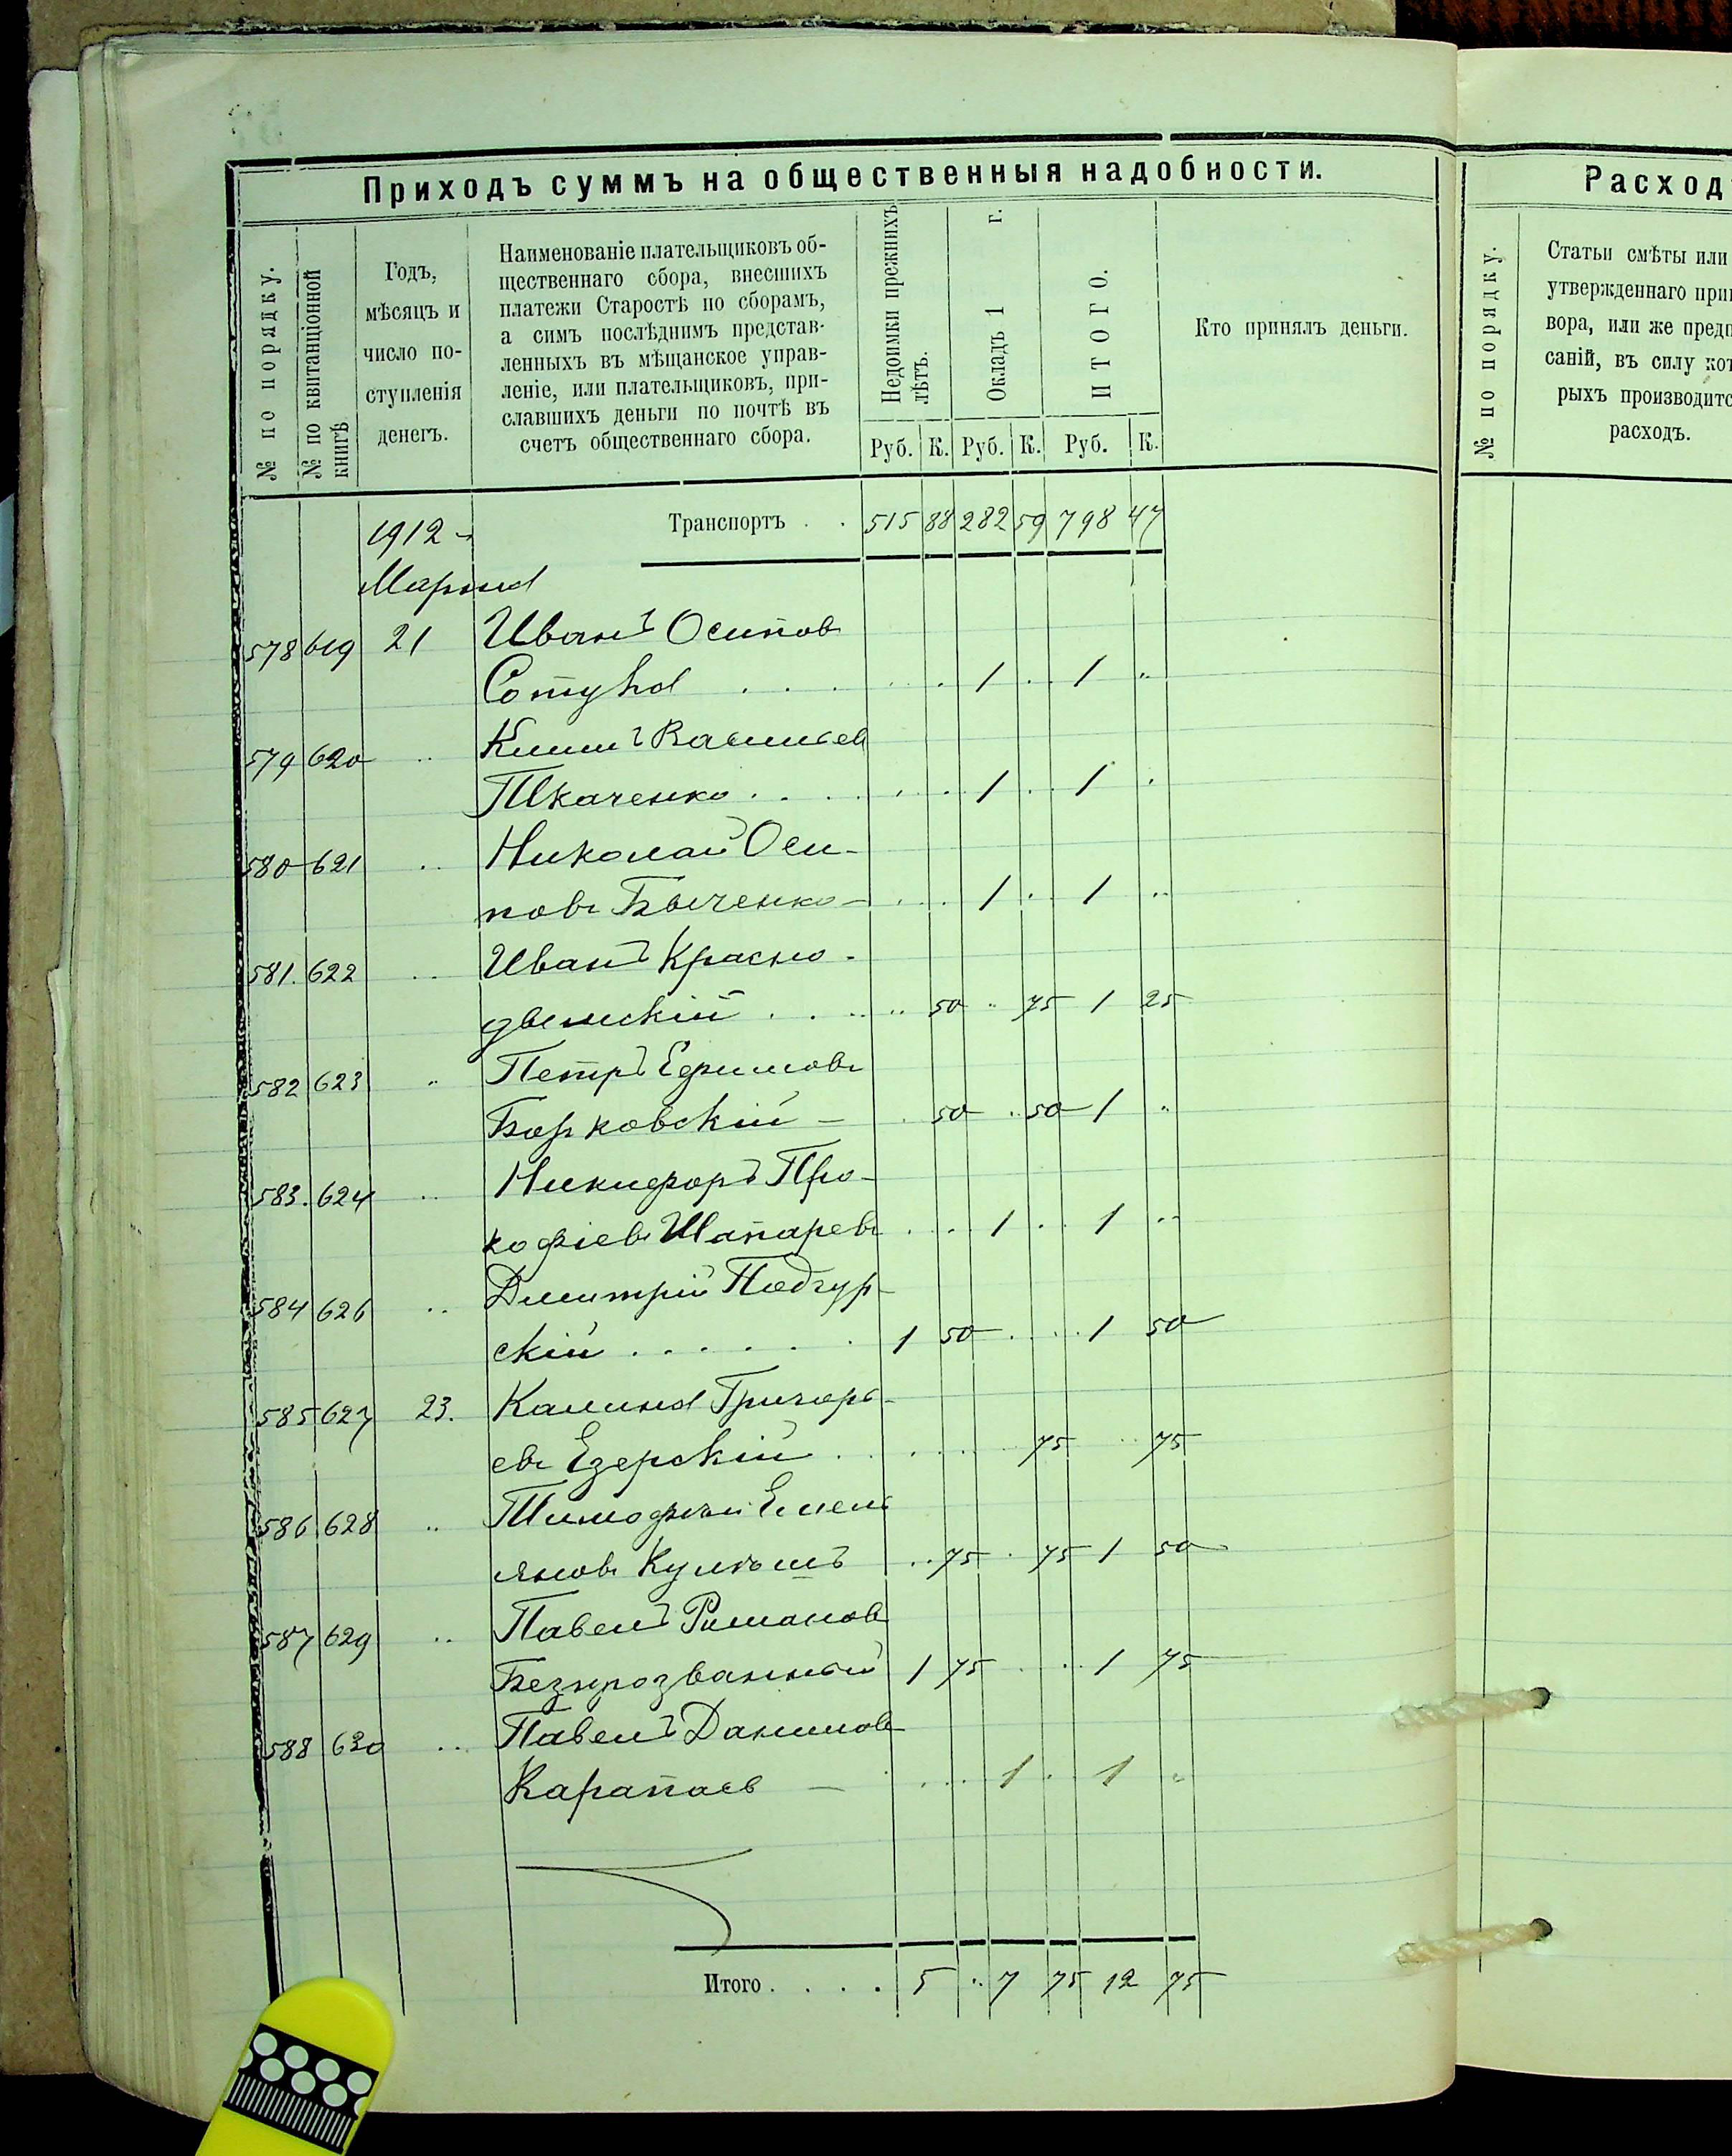 Приходъ суммъ на общественныя надобности.
№ по порядку.
№ по квитанціонной книгѣ
Годъ,
мѣсяцъ и
число по-
ступленія
денегъ.
Наименованіе плательщиковъ об-
щественнаго сбора, внесшихъ
платежи Старостѣ по сборамъ,
а симъ послѣднимъ представ-
ленныхъ въ мѣщанское управ-
леніе, или плательщиковъ, при-
славшихъ деньги по почтѣ въ
счетъ общественнаго сбора.
Недоимки прежнихъ лѣтъ.
Окладъ 1 г.
ИТОГО.
Кто принялъ деньги.
Руб. К. Руб. К. Руб. К.
1912 Транспортъ . . 515 88 282 59 798 47
Марта
578 619 21 Иванъ Осипов
Сотула . . . . . 1 . 1 "
579 620 " Климъ Васильев
Ткаченко . . . . . 1 . 1 .
580 621 " Николай Оси-
повъ Быченко - . . . 1 . 1 "
581. 622 " Иванъ Красно-
. . . " 50 " 75 1 25
582 623 " Петръ Ефимовъ
Борковскій - . 50 " 50 1 "
583. 624 " Никифоръ Про-
кофіевъ Шапаревъ . . . 1 . . 1 "
584 626 " Дмитрій Подгур-
скій . . . . . . 1 50 . . . 1 50
585 627 23. Калина Григорь-
евъ Езерскій . . . . . 75 " 75
586 628 " Тимофей Емель
яновъ Кулешъ . . 75 . 75 1 50
587 629 " Павелъ Романов
Безпрозванный 1 75 . . . 1 75
588 630 " Павелъ Данилов
Карапаев - . . . 1 . 1 "
Итого . . . . 5 " 7 75 12 75
Расходъ
№ по порядку.
Статьи смѣты или
утвержденнаго при
вора, или же предп
саній, въ силу кот
рыхъ производитс
расходъ.